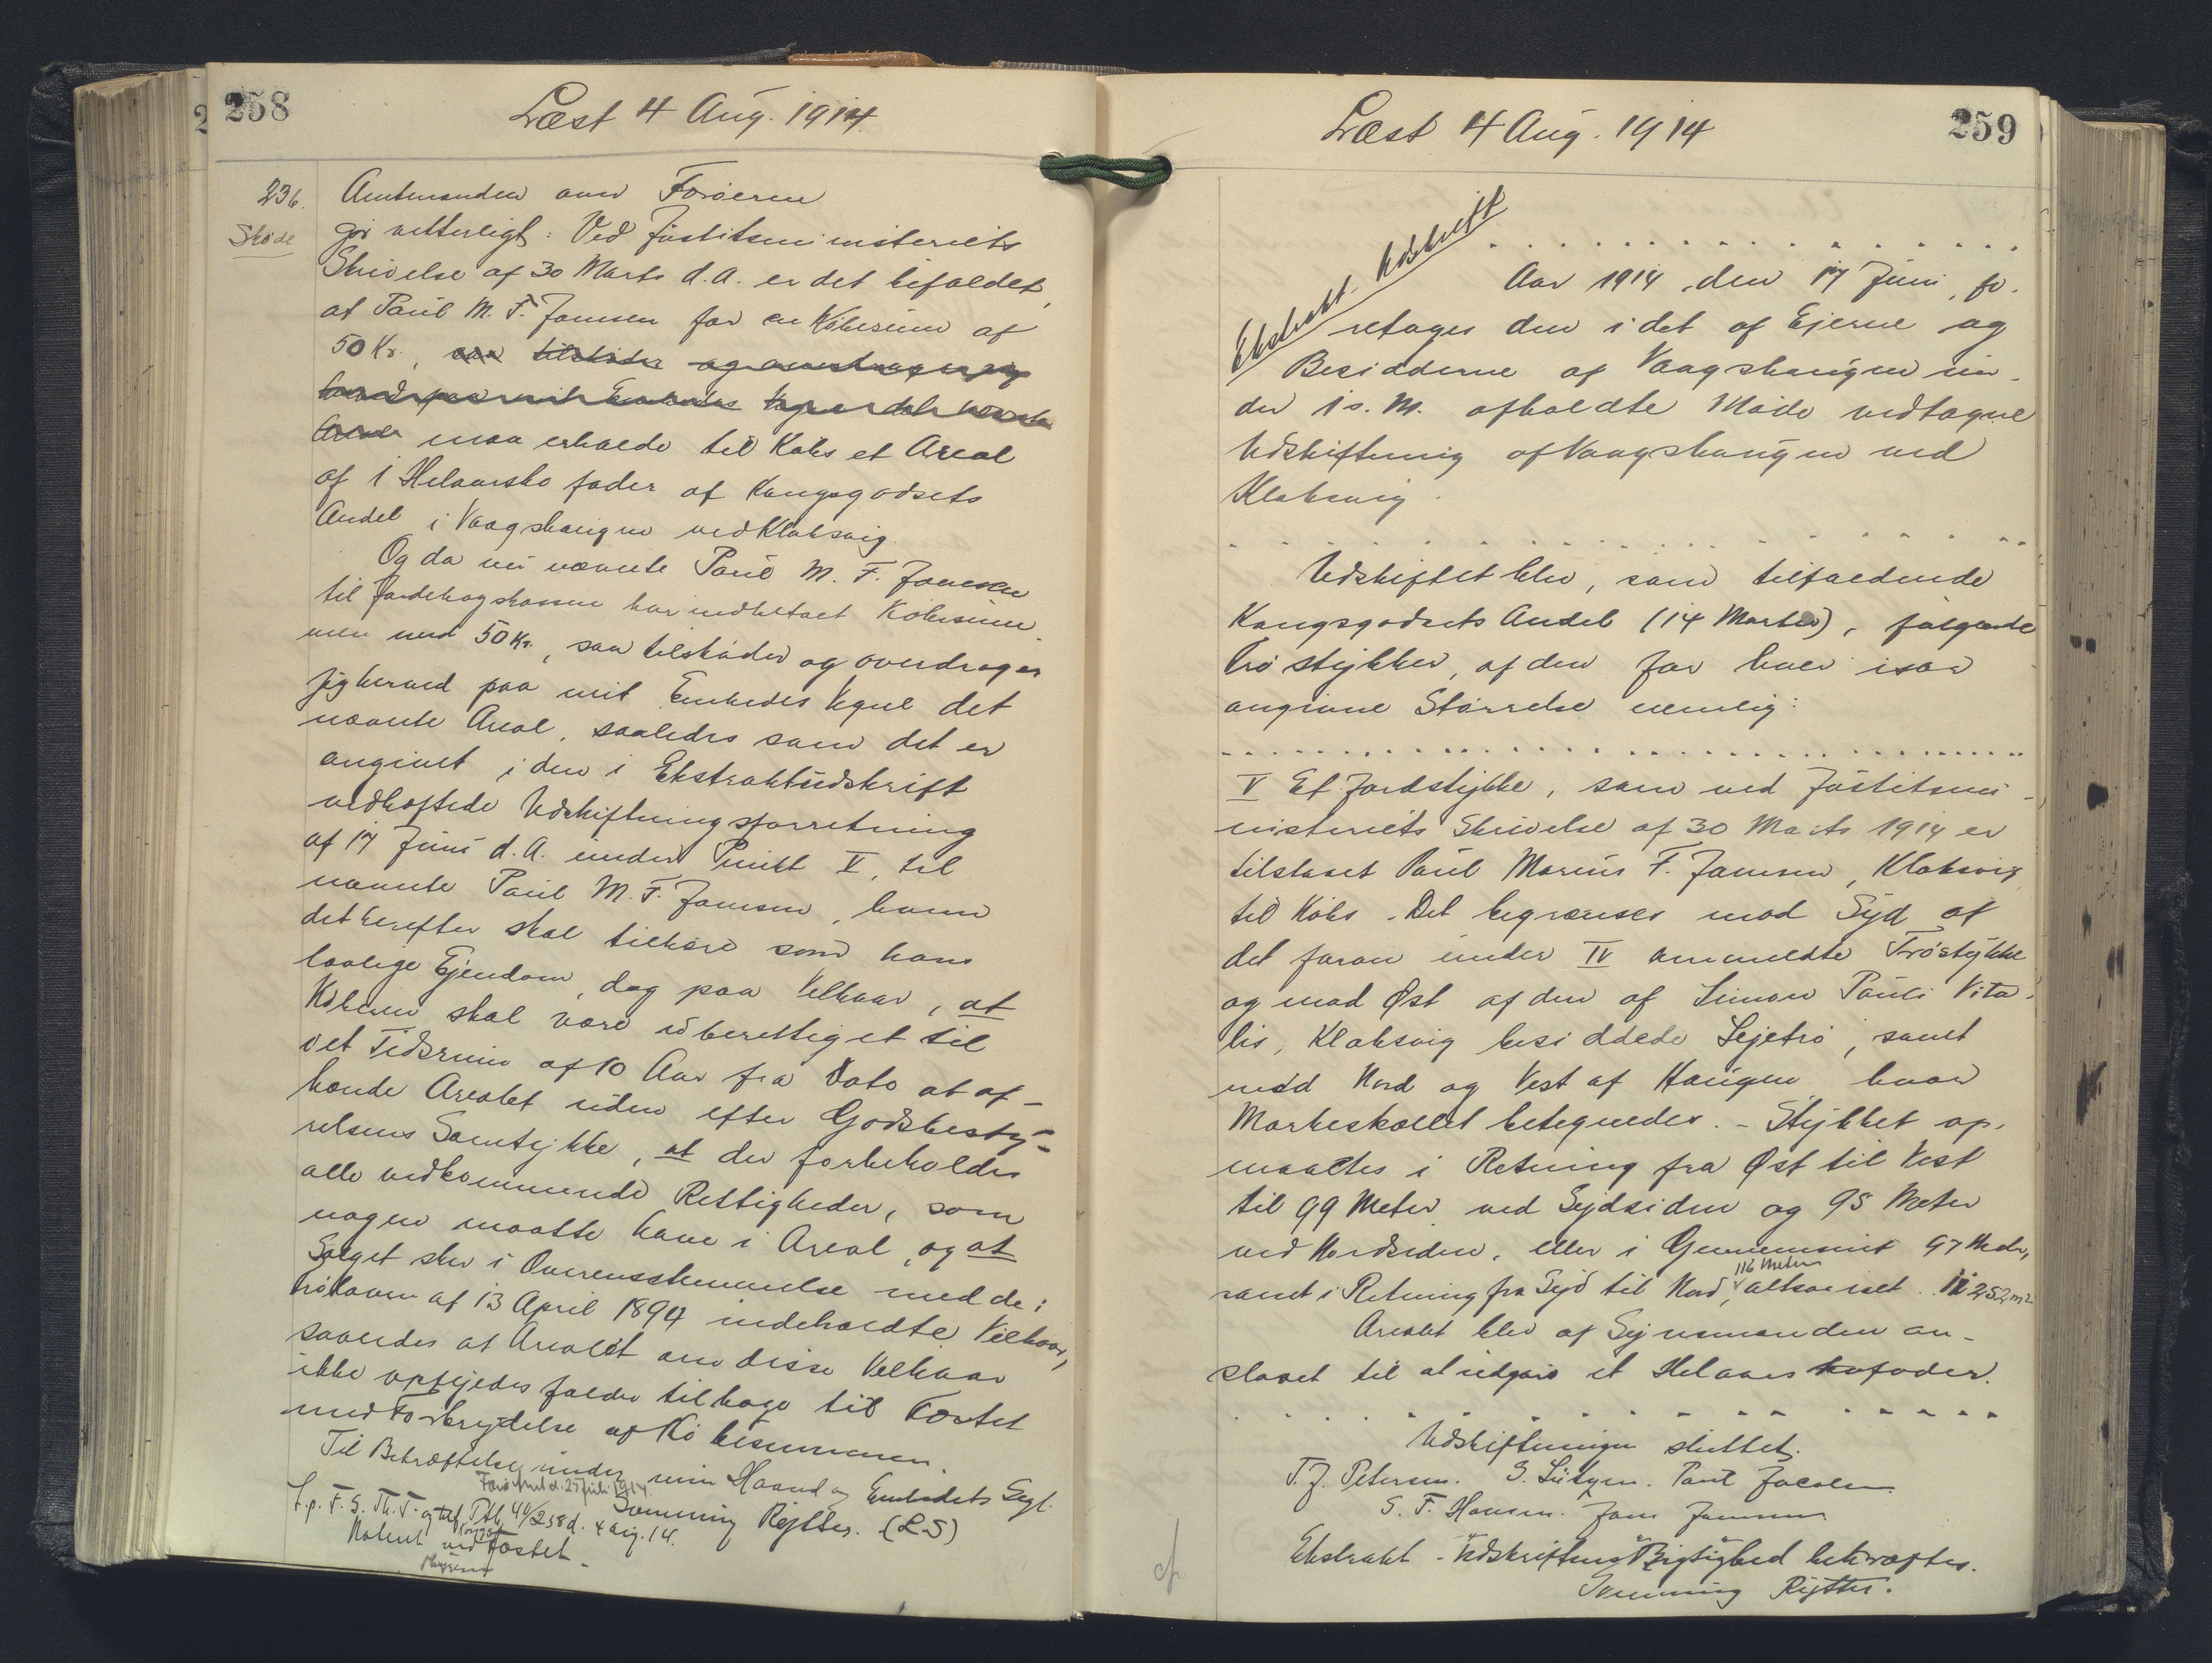 258
Læst 4 Aug. 1914.
236.
Skøde
Amtmanden over Færøerne
gør vitterligt: Ved Justitsministeriets
Skrivelse af 30 Marts d.A. er det bifaldet,
at Paul M. F. Joensen for en Købesum af
50 Kr.,
maa erholde til Købs et Areal
af 1 Helaarsko foder af Kongsgodsets
Andel i Vaagshaugen ved Klaksvig.
Og da nu nævnte Paul M. F. Joensen
til Jordebogskassen har indbetalt Købesum-
men med 50 Kr., saa tilskøder og overdrager
jeg herved paa mit Embedes Vegne det
nævnte Areal, saaledes som det er
angivet i den i Ekstraktudskrift
vedhæftede Udskiftningsforretning
af 17 Juni d.A. under Punkt V, til
nævnte Paul M. F. Joensen, hvem
det herefter skal tilhøre som hans
lovlige Ejendom, dog paa Vilkaar, at
Køberen skal være uberettiget til
i et Tidsrum af 10 Aar fra Dato at af-
hænde Arealet uden efter Godsbesty-
relsens Samtykke, at der forbeholdes
alle vedkommende Rettigheder, som
nogen maatte have i Areal, og at
Salget sker i Overensstemmelse med de i
Trøloven af 13 April 1894 indeholdte Vilkaar,
saaledes at Arealet om disse Vilkaar
ikke opfyldes falder tilbage til Fæstet
med Fortabelse af Købesummen.
Til Bekræftelse under min Haand og Embedets Segl.
Færø Amt d. 25 Juli 1914.
Svenning Rytter. (L.S)
L.p. F. S. Th. T. og tul. Ptb. 40/258 d. 4 Aug. 14.
Noteret ved Fæstet-
259
Læst 4 Aug. 1914
Ekstrakt Udskrift
. . . . . . . . . . . . . . .
Aar 1914, den 17 Juni, fo-
retoges den i det af Ejerne og
Besidderne af Vaagshaugen un-
der 1 s. M. afholdte Møde vedtagne
Udskiftning af Vaagshaugen ved
Klaksvig.
. . . . . . . . . . . . . . .
Udskiftet blev, som tilfaldende
Kongsgodsets Andel (14 Marker), følgende
Trøstykker, af den for hver især
angivne Størrelse nemlig:
. . . . . . . . . . . . . . .
V Et Jordstykke, som ved Justitsmi-
nisteriets Skrivelse af 30 Marts 1914 er
tilstaaet Paul Marius F. Joensen, Klaksvig
til Købs. Det begrænses mod Syd af
det foran under IV ommeldte Trøstykke
og mod Øst af den af Simon Pauli Vita-
lis, Klaksvig besiddede Lejetrø, samt
mod Nord og Vest af Haugen hvor
Markeskellet betegnedes. - Stykket op-
maaltes i Retning fra Øst til Vest
til 99 Meter ved Sydsiden og 95 Meter
ved Nordsiden, eller i Gennemsnit 97 Meter,
samt i Retning fra Syd til Nord, 116 Meter altsaa ialt 11252 m2
Arealet blev af Synsmændene an-
slaaet til at udgøre et Helaars kofoder.
. . . . . . . . . . . . . . .
Udskiftningen sluttet.
T. J. Petersen. S. Lützen. Paul Jacobsen.
S. F. Hansen. Joen Joensen
Ekstrakt-Udskriftens Rigtighed bekræftes.
Svenning Rytter.